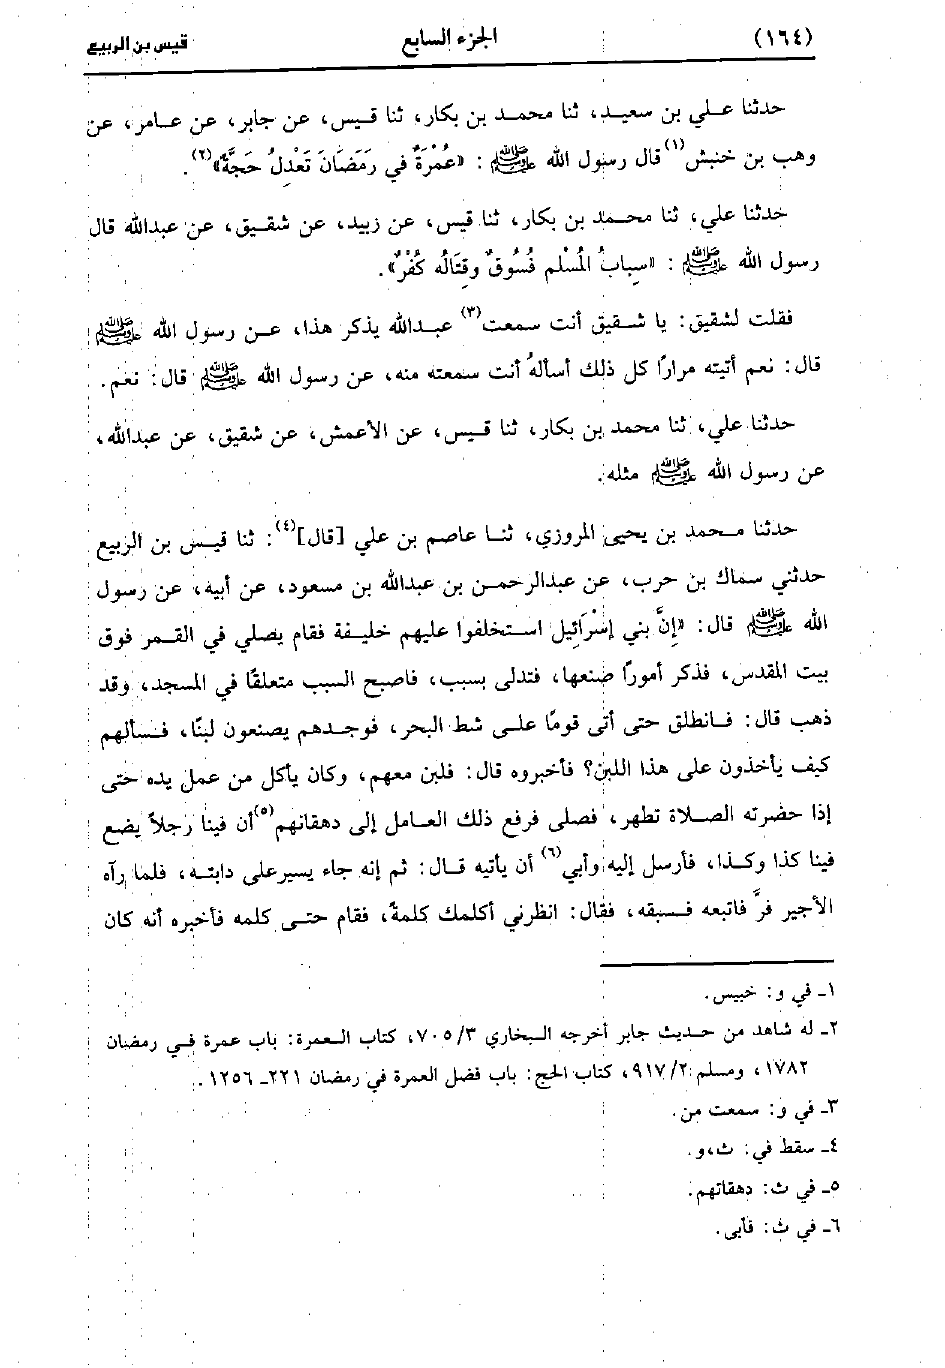 (١٦٤) الجزء السابع قيس بن الربيع
حدثنا علي بن سعيد، ثنا محمد بن بكار، ثنا قيس، عن جابر، عن عامر، عن
وهب بن خنبش(١) قال رسول الله ﷺ : «عُمْرَةٌ في رَمَضَانَ تَعْدِلُ حَجَّةً»(٢).
حدثنا علي، ثنا محمد بن بكار، ثنا قيس، عن زبيد، عن شقيق، عن عبدالله قال
رسول الله ﷺ : «سِبابُ المُسْلم فُسُوقٌ وقِتَالُه كُفْرٌ».
فقلت لشقيق: يا شقيق أنت سمعت(٣) عبدالله يذكر هذا، عن رسول الله ﷺ
قال: نعم أتيته مرارًا كل ذلك أسألهُ أنت سمعته منه، عن رسول الله ﷺ قال: نعم.
حدثنا علي، ثنا محمد بن بكار، ثنا قيس، عن الأعمش، عن شقيق، عن عبدالله،
عن رسول الله ﷺ مثله.
حدثنا محمد بن يحيى المروزي، ثنا عاصم بن علي [قال](٤): ثنا قيس بن الربيع
حدثني سماك بن حرب، عن عبدالرحمن بن عبدالله بن مسعود، عن أبيه، عن رسول
الله ﷺ قال: «إنَّ بني إسْرَائِيل استخلفوا عليهم خليفة فقام يصلي في القمر فوق
بيت المقدس، فذكر أمورًا صنعها، فتدلى بسبب، فاصبح السبب متعلقًا في المسجد، وقد
ذهب قال: فانطلق حتى أتى قومًا على شط البحر، فوجدهم يصنعون لبنًا، فسألهم
كيف يأخذون على هذا اللبن؟ فأخبروه قال: فلبن معهم، وكان يأكل من عمل يده حتى
إذا حضرته الصلاة تطهر، فصلى فرفع ذلك العامل إلى دهقانهم(٥) أن فينا رجلاً يضع
فينا كذا وكذا، فأرسل إليه وأبي(٦) أن يأتيه قال: ثم إنه جاء يسير على دابته، فلما رآه
الأجير فرَّ فاتبعه فسبقه، فقال: انظرني أكلمك كلمةً، فقام حتى كلمه فأخبره أنه كان
١ـ في و: خبيس.
٢ـ له شاهد من حديث جابر أخرجه البخاري ٧٠٥/٣، كتاب العمرة: باب عمرة في رمضان
١٧٨٢، ومسلم ٩١٧/٢، كتاب الحج: باب فضل العمرة في رمضان ٢٢١ـ ١٢٥٦.
٣ـ في و: سمعت من.
٤ـ سقط في: ث،و.
٥ـ في ث: دهقاتهم.
٦ـ في ث: فأبى.